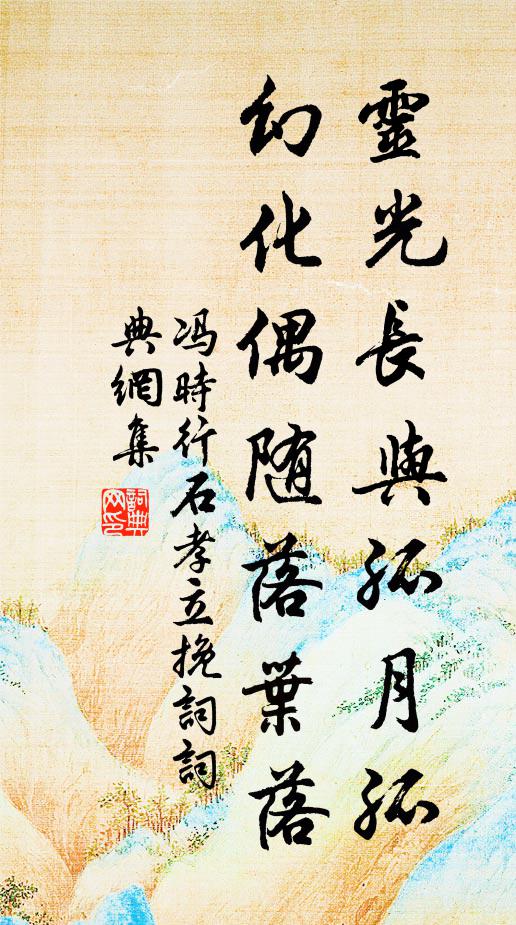 靈光長與孤月孤
幻化偶随落葉落
冯時行石孝立挽詞詞
典網集
詞典网印